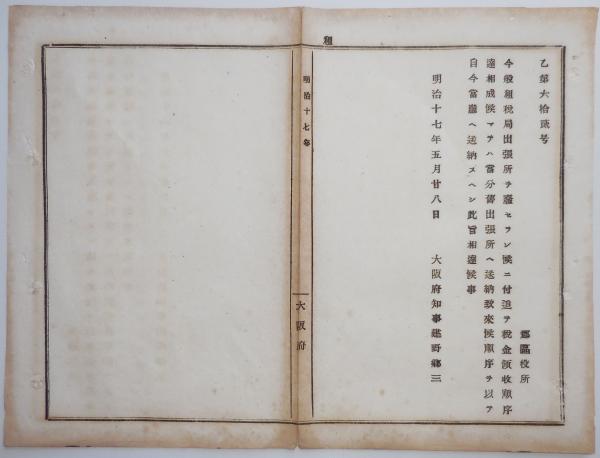 乙第六拾貳号
郡區役所
今般租税局出張所ヲ廢セラレ候ニ付追テ税金領收順序
達相成候マデハ當分舊出張所ヘ送納致來候順序ヲ以テ
自今當廳ヘ送納スヘシ此旨相達候事
明治十七年五月廿八日
大阪府知事建野郷三
租
明治十七年
大阪府